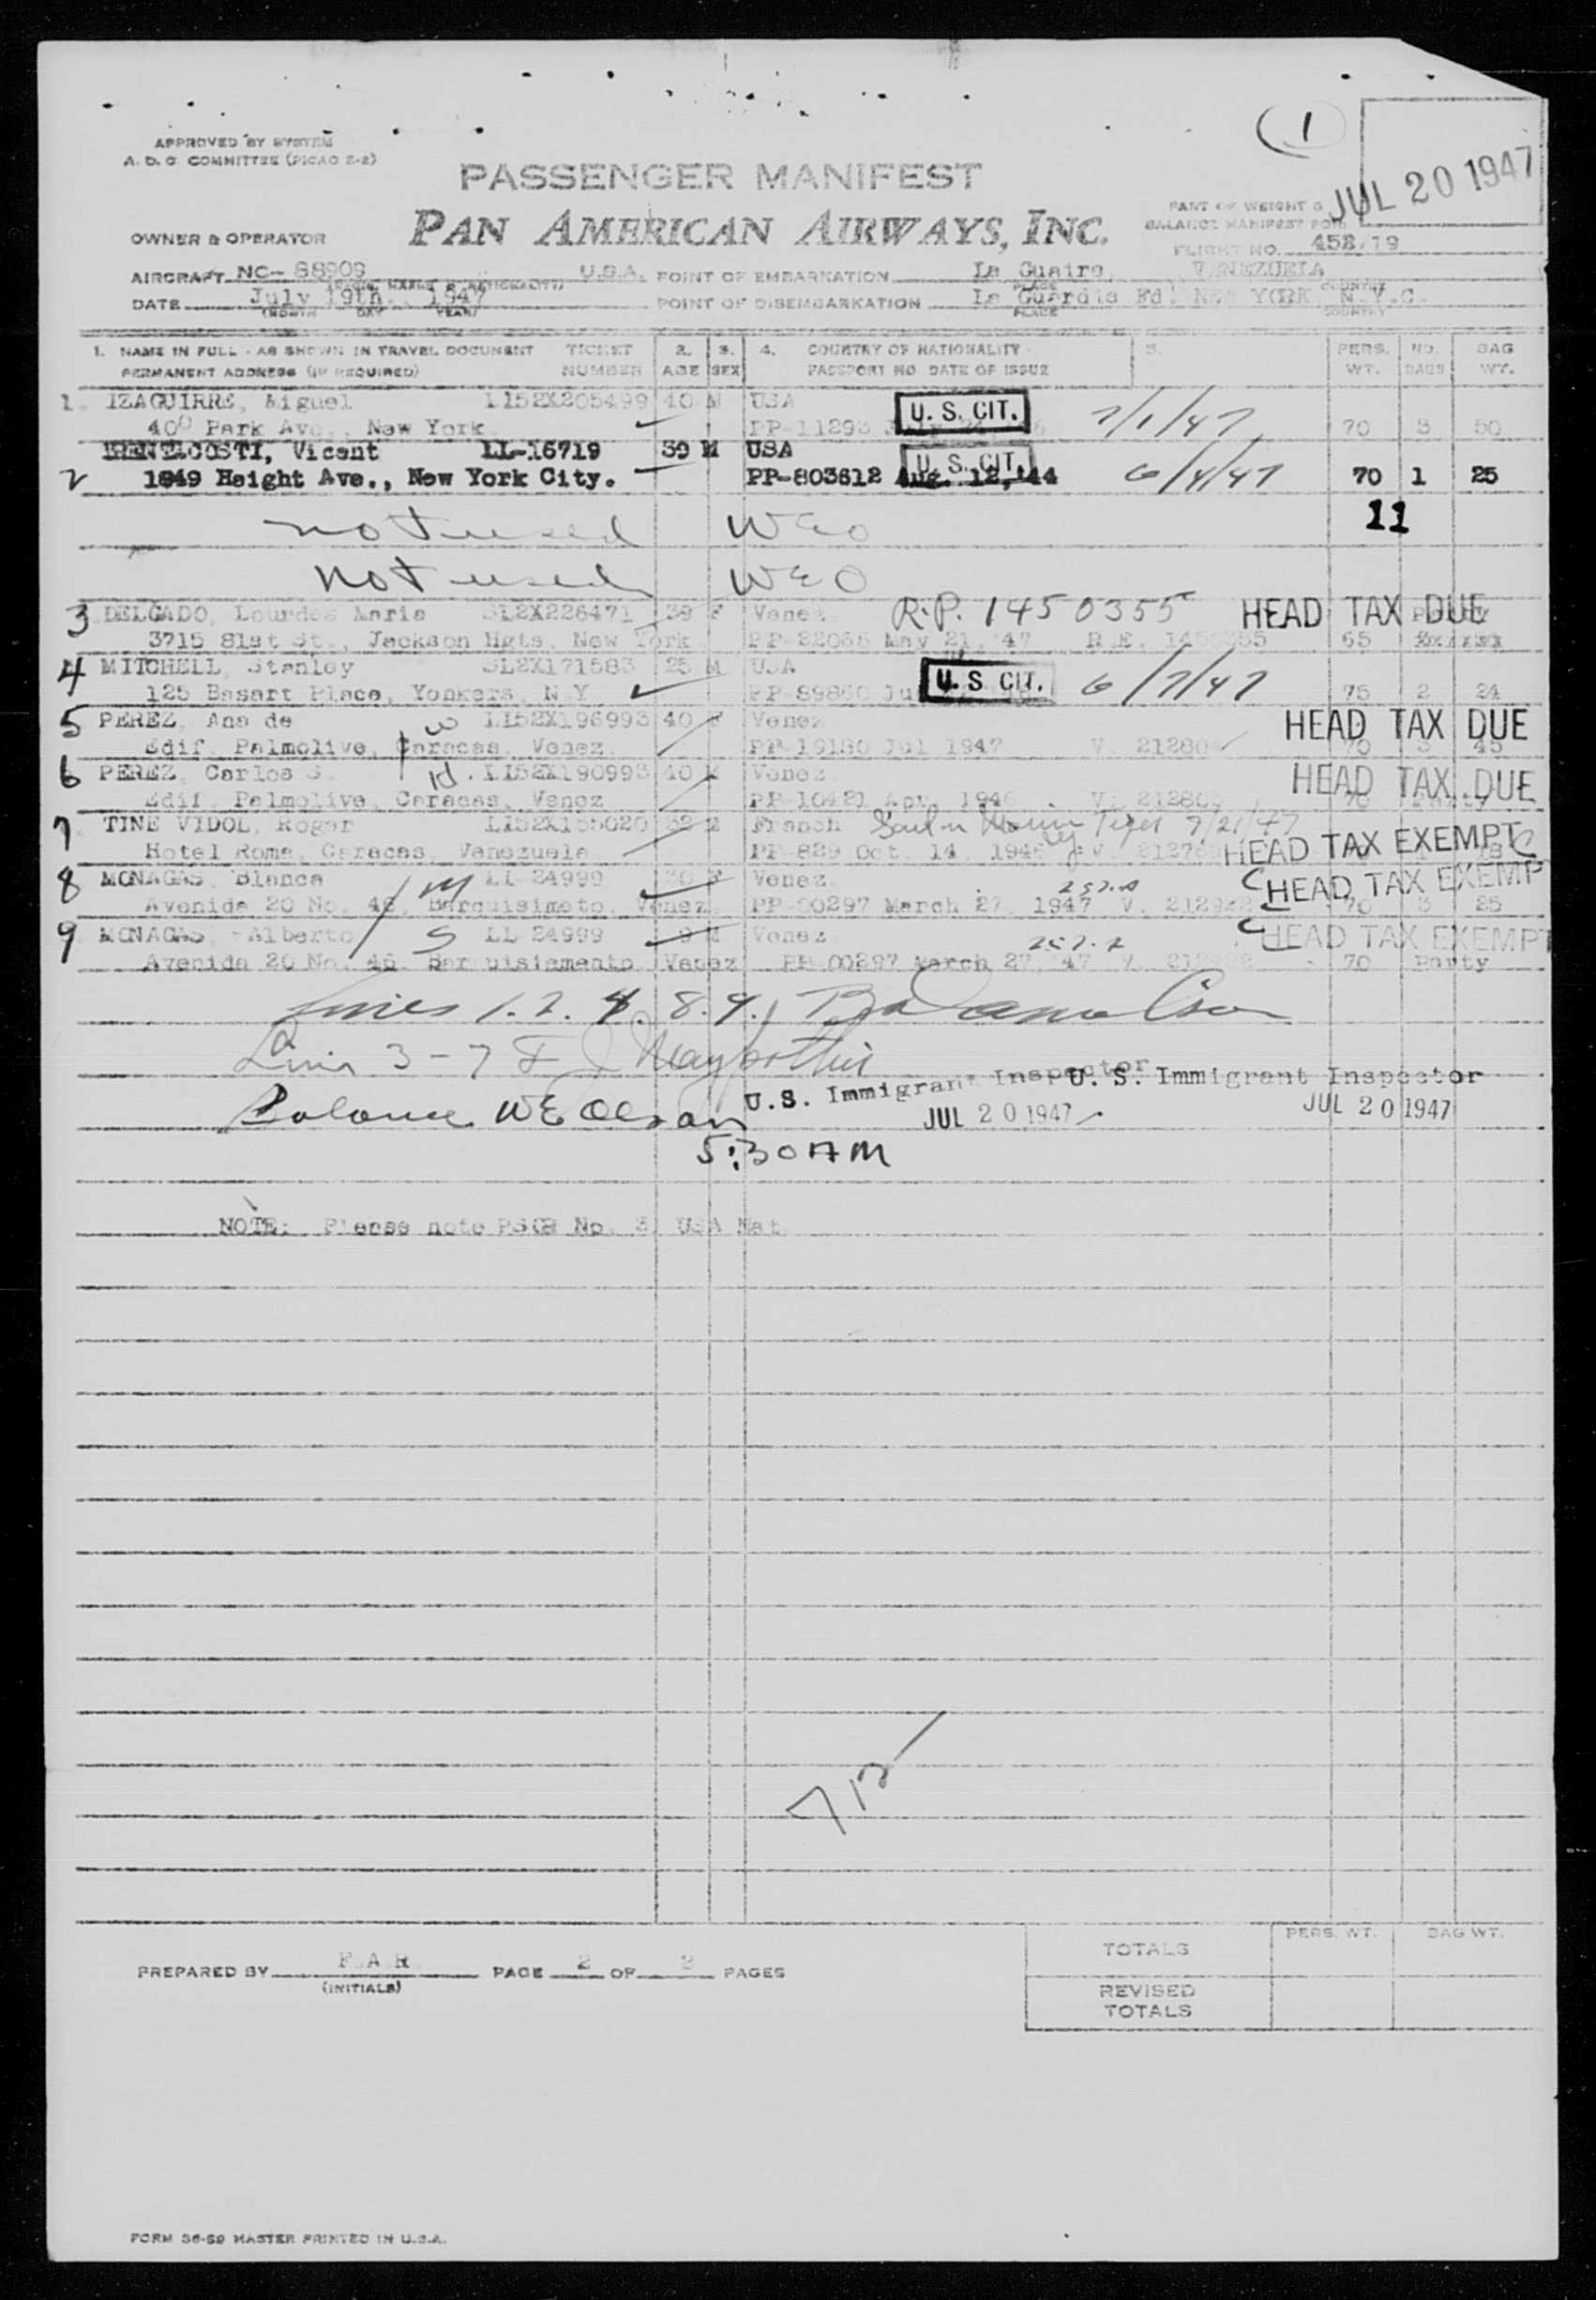 1
APPROVED BY SYSTEM
A. D. C. COMMITTEE (PICAO 2-2)
PASSENGER MANIFEST
JUL 20 1947
PART OF WEIGHT &
BALANCE MANIFEST FOR
OWNER & OPERATOR PAN AMERICAN AIRWAYS, INC.
FLIGHT NO. 458/19
AIRCRAFT NC- 88909 U.S.A. POINT OF EMBARKATION La Guaira, VENEZUELA
DATE July 19th., 1947 POINT OF DISEMBARKATION La Guardia Fd. NEW YORK, N.Y.C.
(MONTH DAY YEAR) PLACE COUNTRY
1. NAME IN FULL - AS SHOWN IN TRAVEL DOCUMENT TICKET 2. 3. 4. COUNTRY OF NATIONALITY 5. PERS. NO. BAG
PERMANENT ADDRESS (IF REQUIRED) NUMBER AGE SEX PASSPORT NO DATE OF ISSUE WT. BAGS WT.
1. IZAGUIRRE, Miguel L152X205499 40 M USA U. S. CIT. 7/1/47
400 Park Ave., New York PP-11293 70 3 50
2 Vicent LL-16719 39 M USA U. S. CIT.
1849 Haight Ave., New York City. PP-803612 Aug. 12, '44 6/4/47 70 1 25
11
not used WEO
not used WEO
3 DELGADO, Lourdes Maria SL2X226471 39 F Venez R.P. 1450355 HEAD TAX DUE
3715 81st St., Jackson Hgts, New York PP-22066 May 21, '47 65
4 MITCHELL, Stanley SL2X171583 25 M USA U. S. CIT. 6/7/47
125 Basart Place, Yonkers, N.Y. PP-89860 75 2 24
5 PEREZ, Ana de L152X196993 40 F Venez HEAD TAX DUE
Edif. Palmolive, Caracas, Venez. PP-19180 Jul 1947 V. 70 3 45
6 PEREZ, Carlos S. L152X190993 40 M Venez HEAD TAX DUE
Edif. Palmolive, Caracas, Venez PP-10421 Apr. 1946 V. 70
7 TINE VIDOL, Roger L152X155020 32 M French 7/21/47
Hotel Roma, Caracas, Venezuela PP-829 Oct. 14, 1946 V. HEAD TAX EXEMPT
8 MONAGAS, Blanca M LL-24999 30 F Venez HEAD TAX EXEMP
Avenida 20 No. 46, Barquisimeto, Venez. PP-00297 March 27, 1947 V. 70 3 25
9 MONAGAS, Alberto S LL-24999 9 M Venez HEAD TAX EXEMPT
Avenida 20 No. 46 Venez PP-00297 March 27, '47 V. 70 Party
Lines 1. 2. 4. 8. 9.,
3-7
Balance WE Olson
U.S. Immigrant Inspector U. S. Immigrant Inspector
JUL 20 1947 JUL 20 1947
5:30 AM
NOTE: Please note PSGR No. 3 USA Nat
PREPARED BY F A R PAGE 2 OF 2 PAGES
(INITIALS)
PERS. WT. BAG WT.
TOTALS
REVISED
TOTALS
FORM 36-59 MASTER PRINTED IN U.S.A.